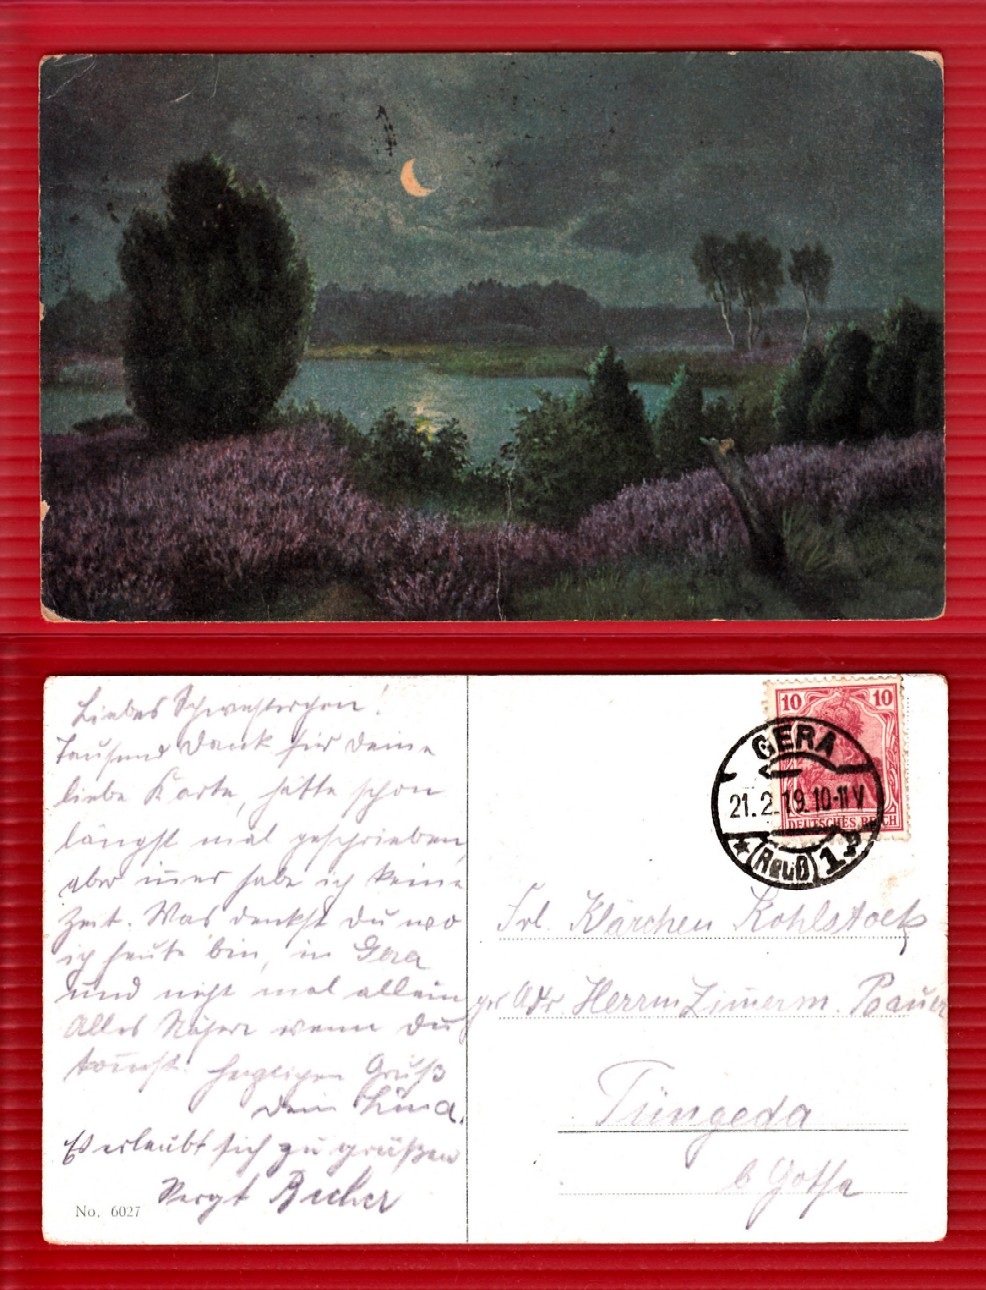 Liebes Schwesterchen!
Tausend Dank für deine
liebe Karte, hätte schon
längst mal geschrieben,
aber im̅er habe ich keine
Zeit. Was denkst du wo
ich heute bin, in Gera
und nicht mal allein,
Alles Näher wenn du
kom̅st. Herzlichen Gruß
dein Lina.
Es erlaubt sich zu grüßen
No. 6027
10 10
DEUTSCHES REICH
GERA
21.2.19.10-11V
(Reuß) 1
Frl. Klärchen Kohlstock
pr Adr. Herrm Zim̅erm. Bauer
Tüngeda
b Gotha